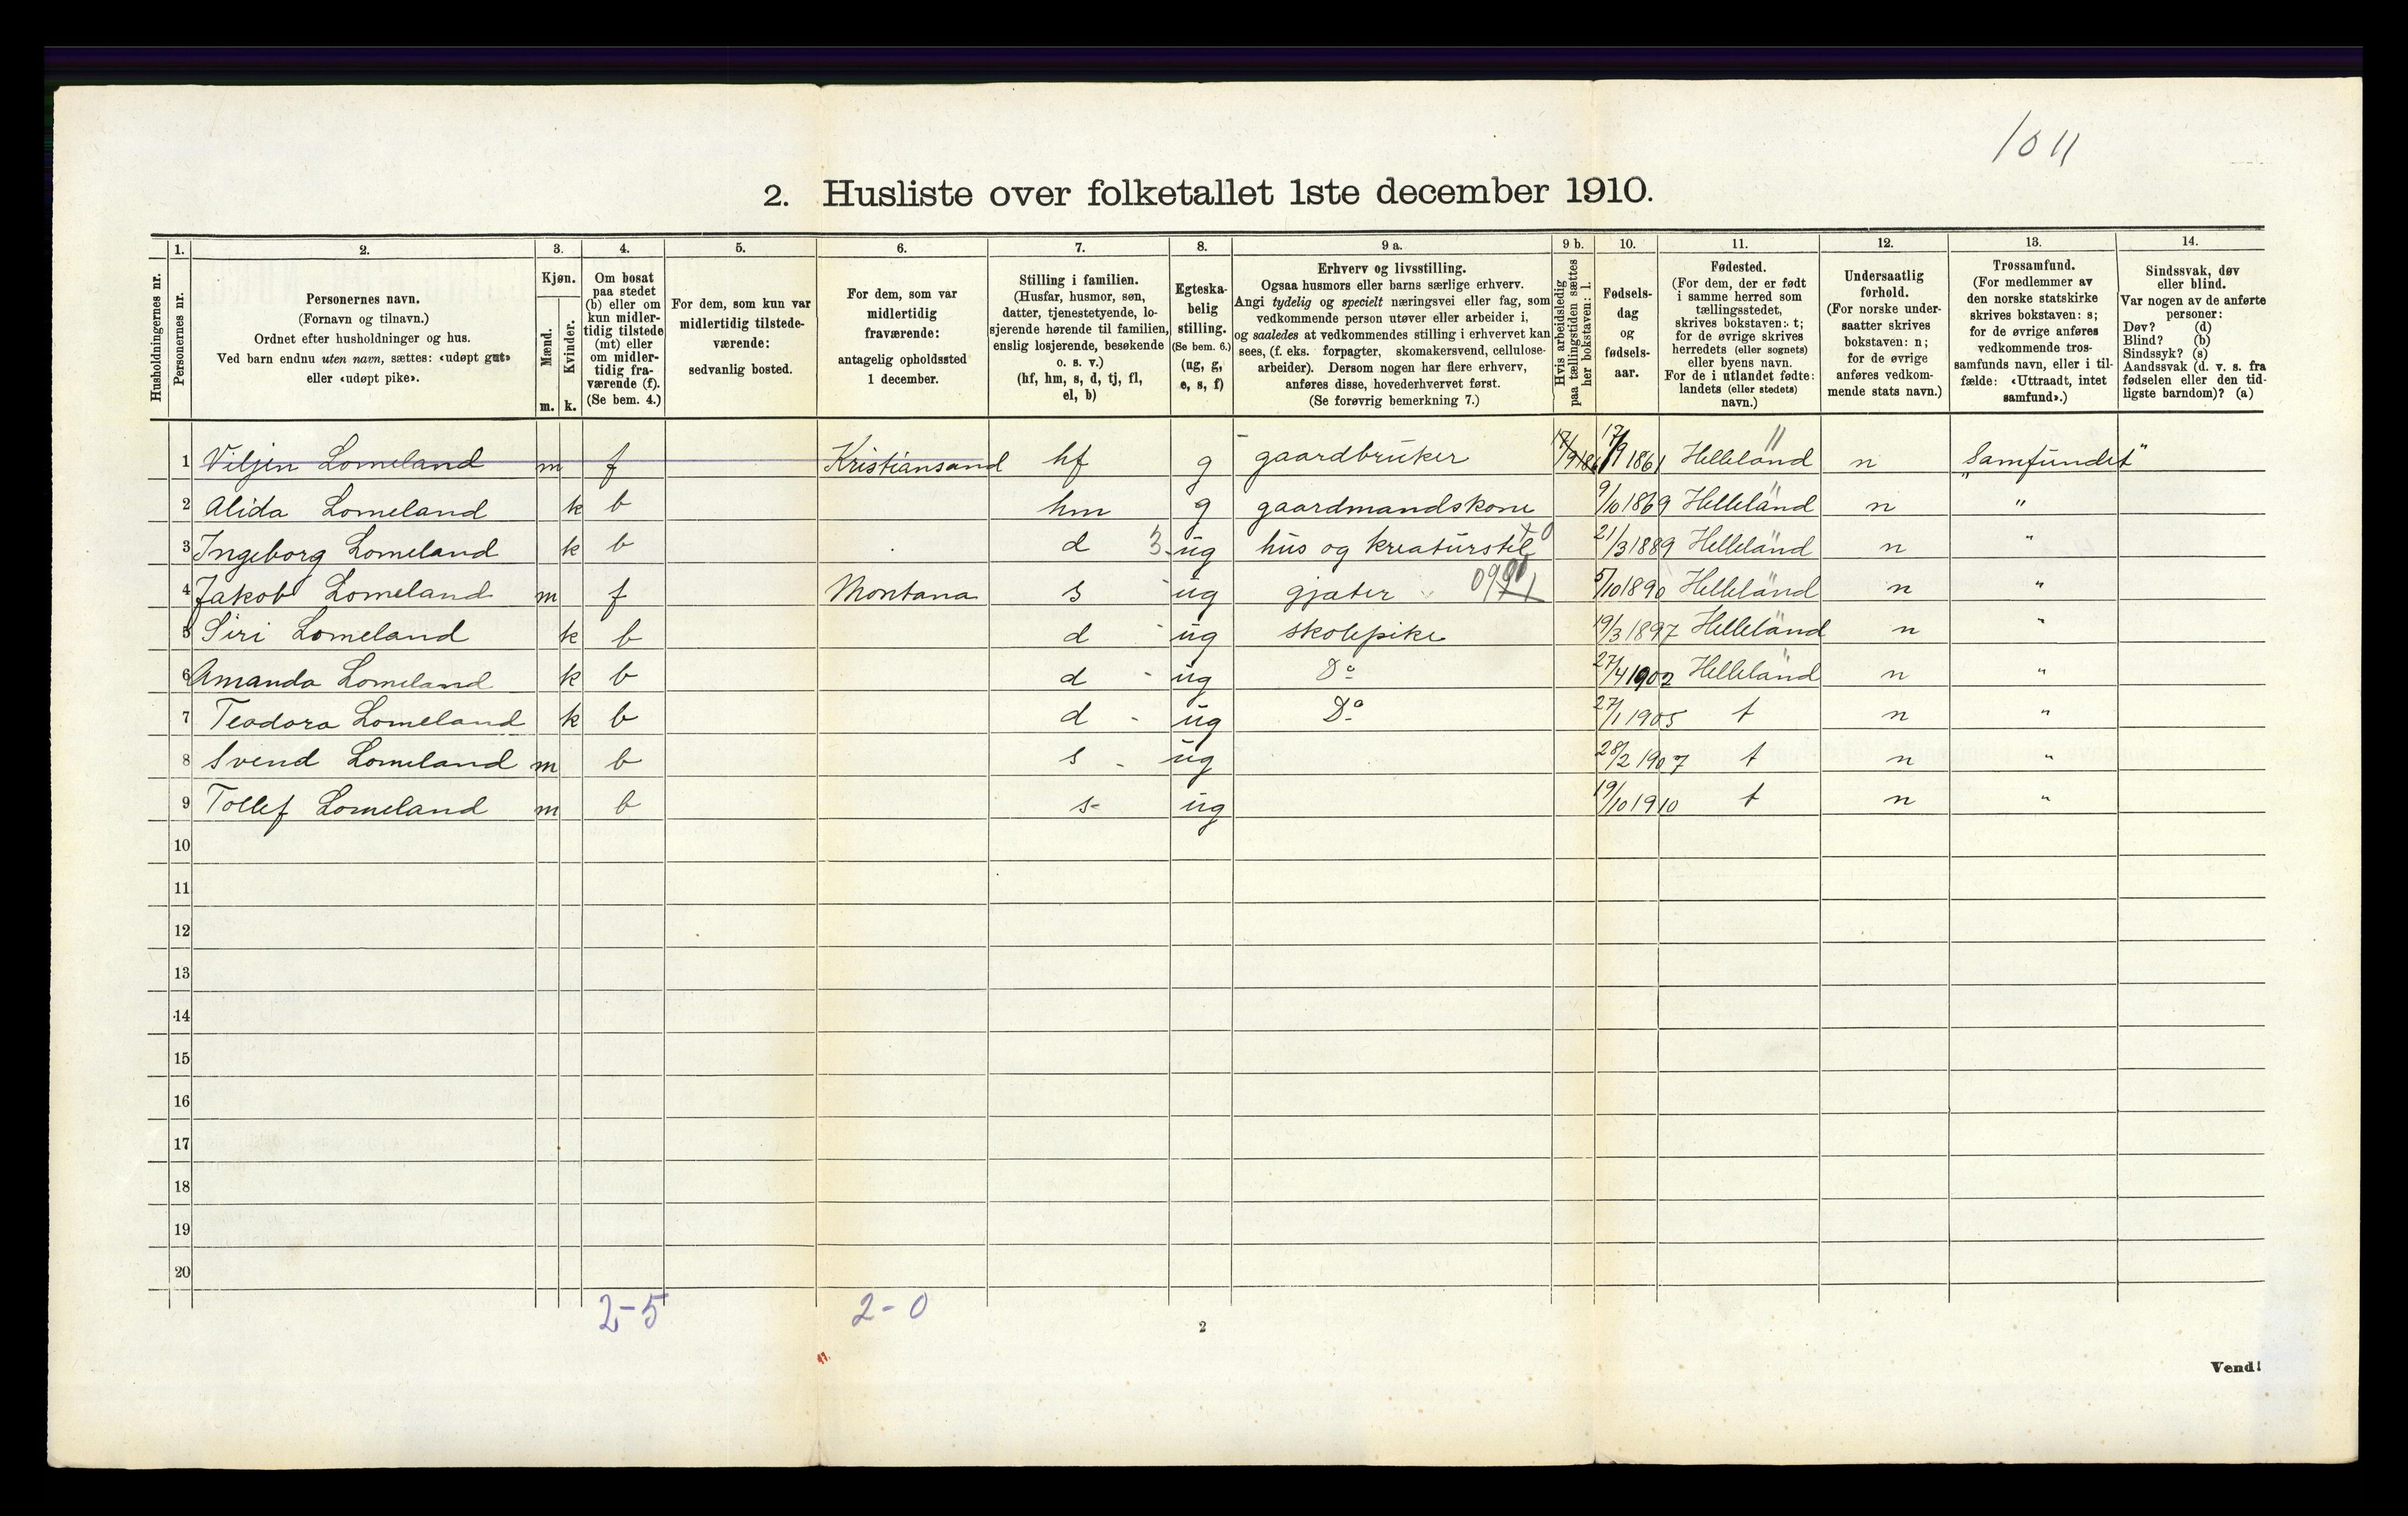 1011
2. Husliste over folketallet 1ste december 1910.
Husholdningernes nr.
1.
Personernes nr.
2.
Personernes navn.
(Fornavn og tilnavn.)
Ordnet efter husholdninger og hus.
Ved barn endnu uten navn, sættes: «udøpt gut»
eller «udøpt pike».
3.
Kjøn.
Mænd.
Kvinder.
m. k.
4.
Om bosat
paa stedet
(b) eller om
kun midler-
tidig tilstede
(mt) eller
om midler-
tidig fra-
værende (f).
(Se bem. 4.)
5.
For dem, som kun var
midlertidig tilstede-
værende:
sedvanlig bosted.
6.
For dem, som var
midlertidig
fraværende:
antagelig opholdssted
1 december.
7.
Stilling i familien.
(Husfar, husmor, søn,
datter, tjenestetyende, lo-
sjerende hørende til familien,
enslig losjerende, besøkende
o. s. v.)
(hf, hm, s, d, tj, fl,
el, b)
8.
Egteska-
belig
stilling.
(Se bem. 6.)
(ug, g,
e, s, f)
9 a.
Erhverv og livsstilling.
Ogsaa husmors eller barns særlige erhverv.
Angi tydelig og specielt næringsvei eller fag, som
vedkommende person utøver eller arbeider i,
og saaledes at vedkommendes stilling i erhvervet kan
sees, (f. eks. forpagter, skomakersvend, cellulose-
arbeider). Dersom nogen har flere erhverv,
anføres disse, hovederhvervet først.
(Se forøvrig bemerkning 7.)
9 b.
Hvis arbeidsledig
paa tællingstiden sættes
her bokstaven: l.
10.
Fødsels-
dag
og
fødsels-
aar.
11.
Fødested.
(For dem, der er født
i samme herred som
tællingsstedet,
skrives bokstaven: t;
for de øvrige skrives
herredets (eller sognets)
eller byens navn.
For de i utlandet fødte:
landets (eller stedets)
navn.)
12.
Undersaatlig
forhold.
(For norske under-
saatter skrives
bokstaven: n;
for de øvrige
anføres vedkom-
mende stats navn.)
13.
Trossamfund.
(For medlemmer av
den norske statskirke
skrives bokstaven: s;
for de øvrige anføres
vedkommende tros-
samfunds navn, eller i til-
fælde: «Uttraadt, intet
samfund».)
14.
Sindssvak, døv
eller blind.
Var nogen av de anførte
personer:
Døv? (d)
Blind? (b)
Sindssyk? (s)
Aandssvak (d. v. s. fra
fødselen eller den tid-
ligste barndom)? (a)
1 Viljen Lomeland m f Kristiansand hf g gaardbruker 17/9 1861 Helleland n "Samfundet"
2 Alida Lomeland k b hm g gaardmandskone 9/10 1869 Helleland n "
3 Ingeborg Lomeland k b d 3 ug hus og kreaturstel 21/3 1889 Helleland n "
4 Jakob Lomeland m f Montana s ug gjæter 5/10 1890 Helleland n "
5 Siri Lomeland k b d ug skolepike 19/3 1897 Helleland n "
6 Amanda Lomeland k b d - ug Do 27/4 1902 Helleland n "
7 Teodora Lomeland k b d - ug Do 27/1 1905 t n "
8 Svend Lomeland m b s - ug 28/2 1907 t n "
9 Tollef Lomeland m b s- ug 19/10 1910 t n "
10
11
12
13
14
15
16
17
18
19
20
2-5 2-0
2
Vend!